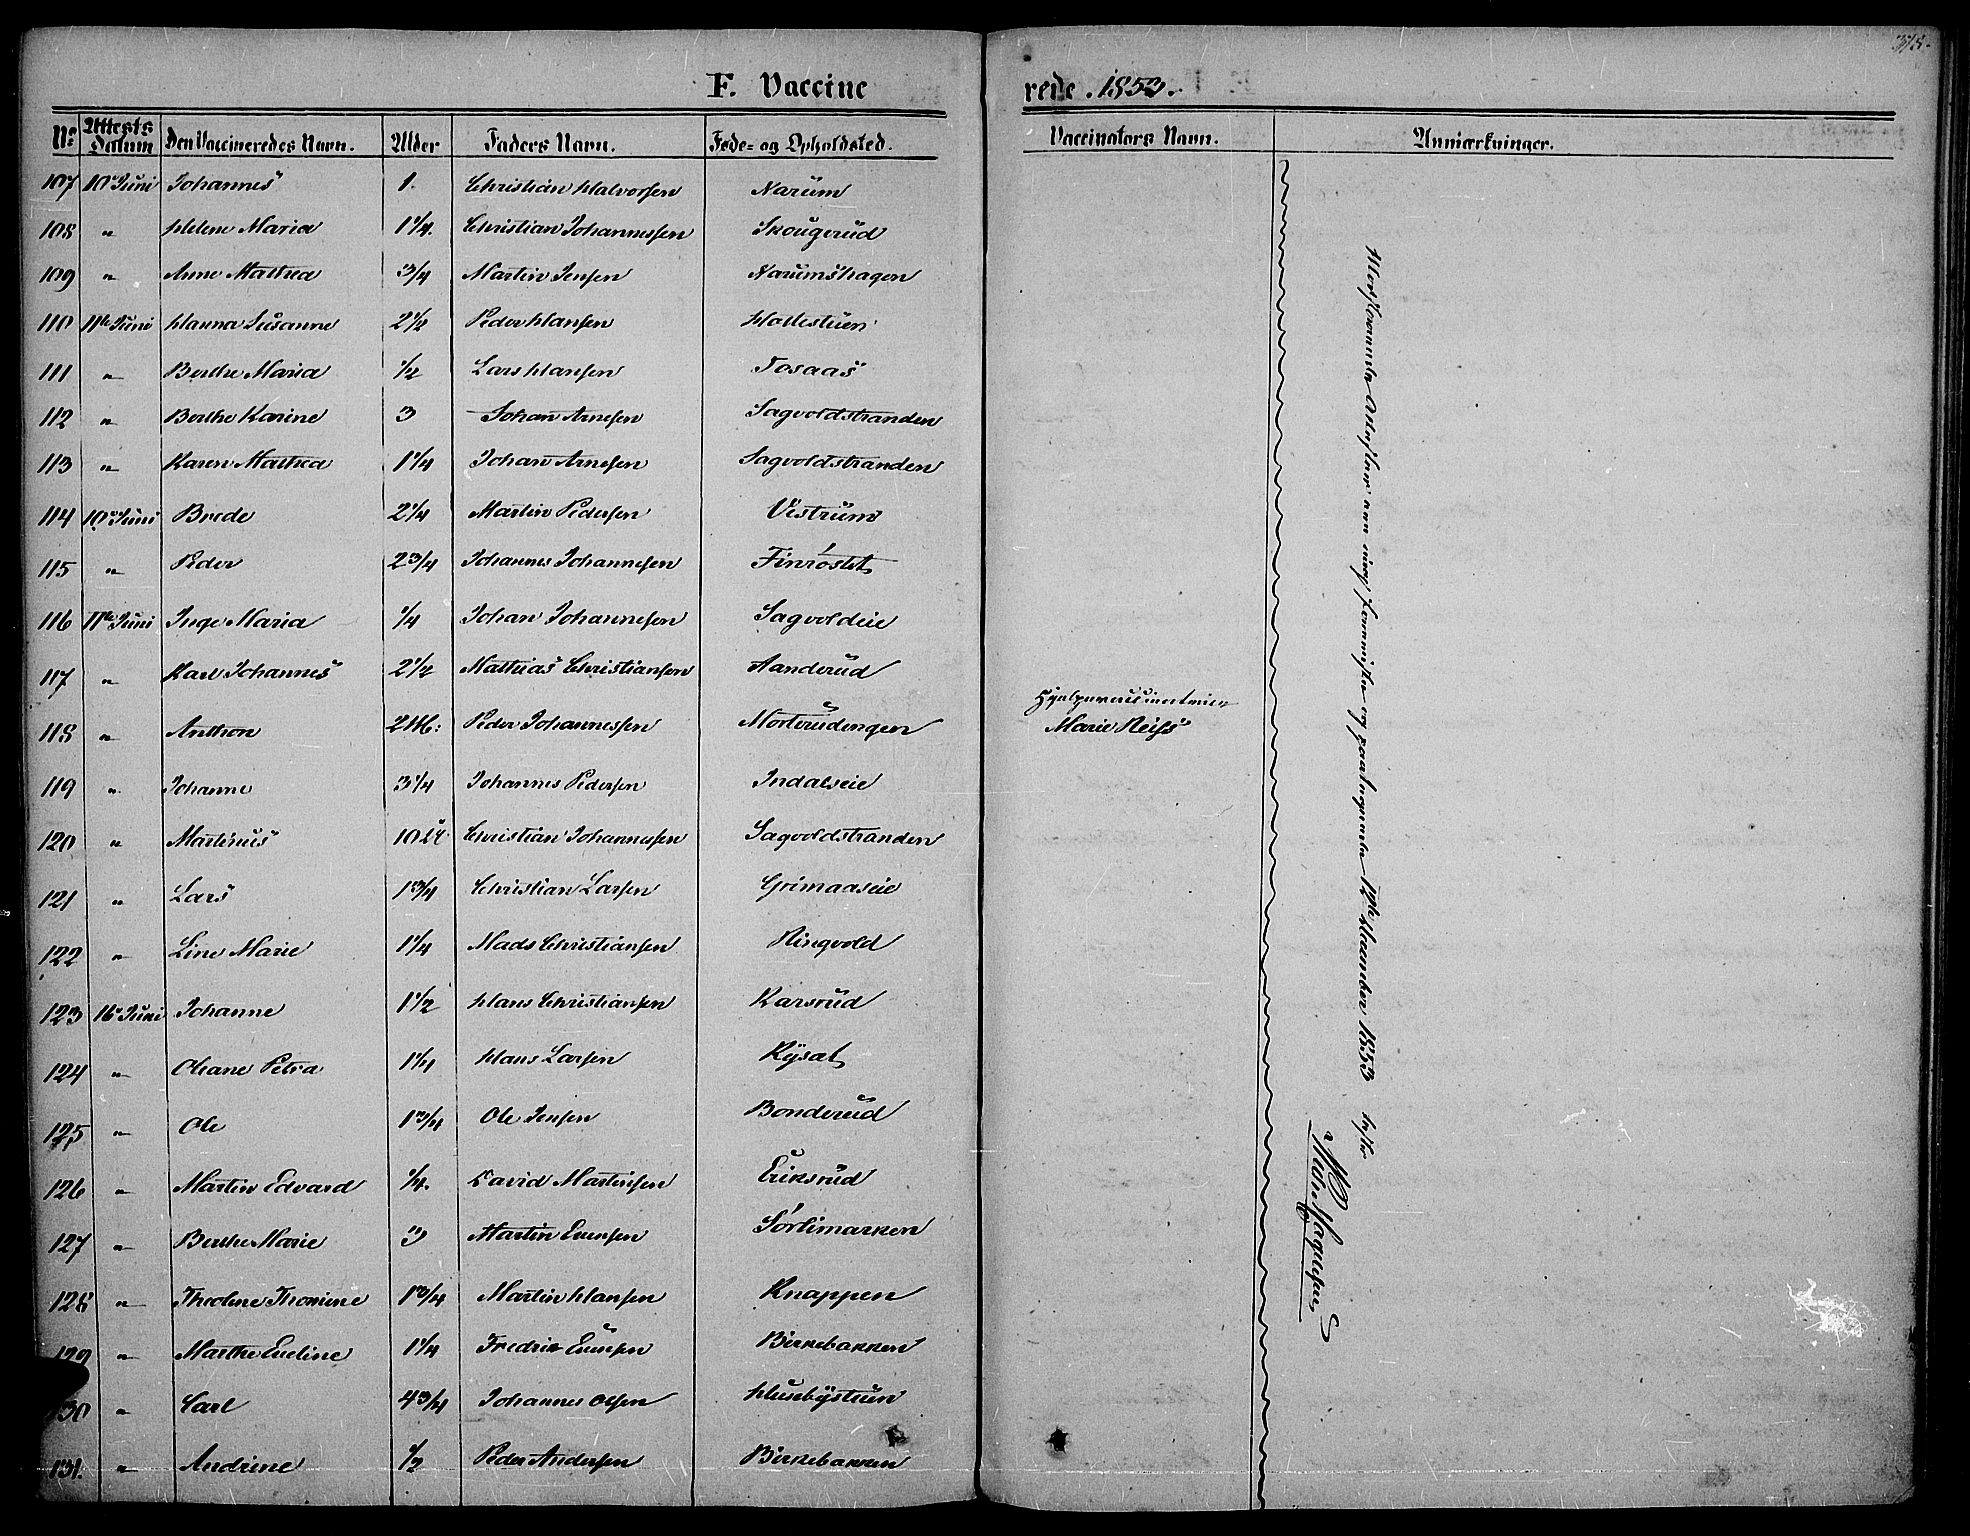 375.
F. Vaccinerede 1853.
No Attests Datum Den Vaccineredes Navn. Alder Faders Navn. Føde- og Opholdsted. Vaccinators Navn. Anmærkninger.
107 10de Juni Johannes 1. Christian Halvorsen Narum
108 " Helene Maria 1 1/4. Christian Johannessen Skougerud
109 " Anne Mathea 3/4 Martin Jensen Narumshagen
110 11te Juni Hanna Susanne 2 1/2 Peder Hansen Holtestuen
111 " Berthe Maria 1/2 Lars Hansen Tosaas
112 " Berthe Karine 3 Johan Arnesen Sagvoldstranden
113 " Karen Mathea 1 1/4 Johan Arnesen Sagvoldstranden
114 10de Juni Brede 2 1/4 Martin Pedersen Vestrum
115 " Peder 2 3/4 Johannes Johannesen Finröstet
116 11te Juni Inge Maria 1/4 Johan Johannesen Sagvoldeie
117 " Karl Johannes 2 1/2 Mathias Christiansen Aanderud
118 " Anthon 2 M: Peder Johannessen Morterudengen Marie Reiss
119 " Johanne 3 1/4 Johannes Pedersen Indalseie
120 " Martinus 10 Christian Johannessen Sagvoldstranden
121 " Lars 1 3/4 Christian Larsen Grimaaseie
122 " Line Marie 1 1/4 Mads Christiansen Ringvold
123 16de Juni Johanne 1 1/2 Hans Christiansen Karsrud
124 " Oliane Petra 1 1/4 Hans Larsen Rÿsat
125 " Ole 1 3/4 Ole Jensen Bonderud
126 " Martin Edvard 1/4. David Martinsen Eriksrud
127 " Berthe Marie 3 Martin Evensen Sörlimarken
128 " Theoline Thomine 1 3/4 Martin Hansen Knappen
129 " Marthe Eveline 1 1/4 Fredrik Evensen Birkebakken
130 " Carl 4 3/4 Johannes Olsen Husebÿstuen
131. " Andrine 1/2 Peder Andersen Birkebakken
1853